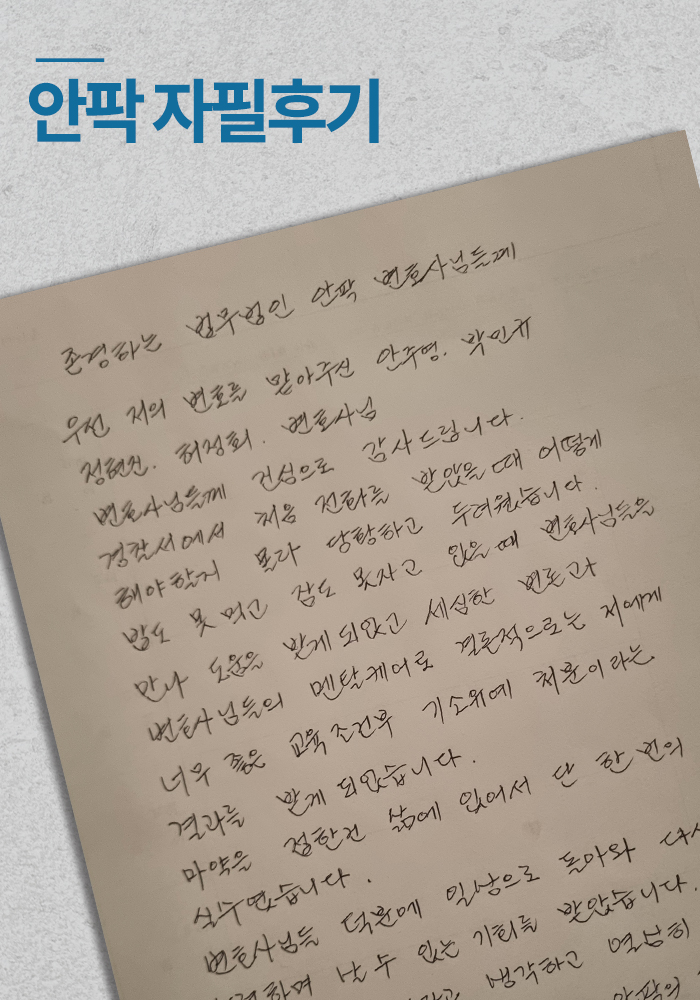 안팍 자필후기
존경하는 법무법인 안팍 변호사님들께
우선 저의 변호를 맡아주신 안주영. 박민규
정현진. 허정회. 변호사님
변호사님들께 진심으로 감사드립니다.
경찰서에서 처음 전화를 받았을때 어떻게
해야할지 몰라 당황하고 두려웠습니다.
밥도 못 먹고 잠도 못자고 있을때 변호사님들을
만나 도움을 받게 되었고 세심한 변론과
변호사님들의 멘탈케어로 결론적으로는 저에게
너무 좋은 교육조건부 기소유예 처분이라는
결과를 받게 되었습니다.
마약을 접한건 삶에 있어서 단 한 번의
실수였습니다.
변호사님들 덕분에 일상으로 돌아와 다시
하며 날 수 있는 기회를 받았습니다.
생각하고 열심히
안팍의